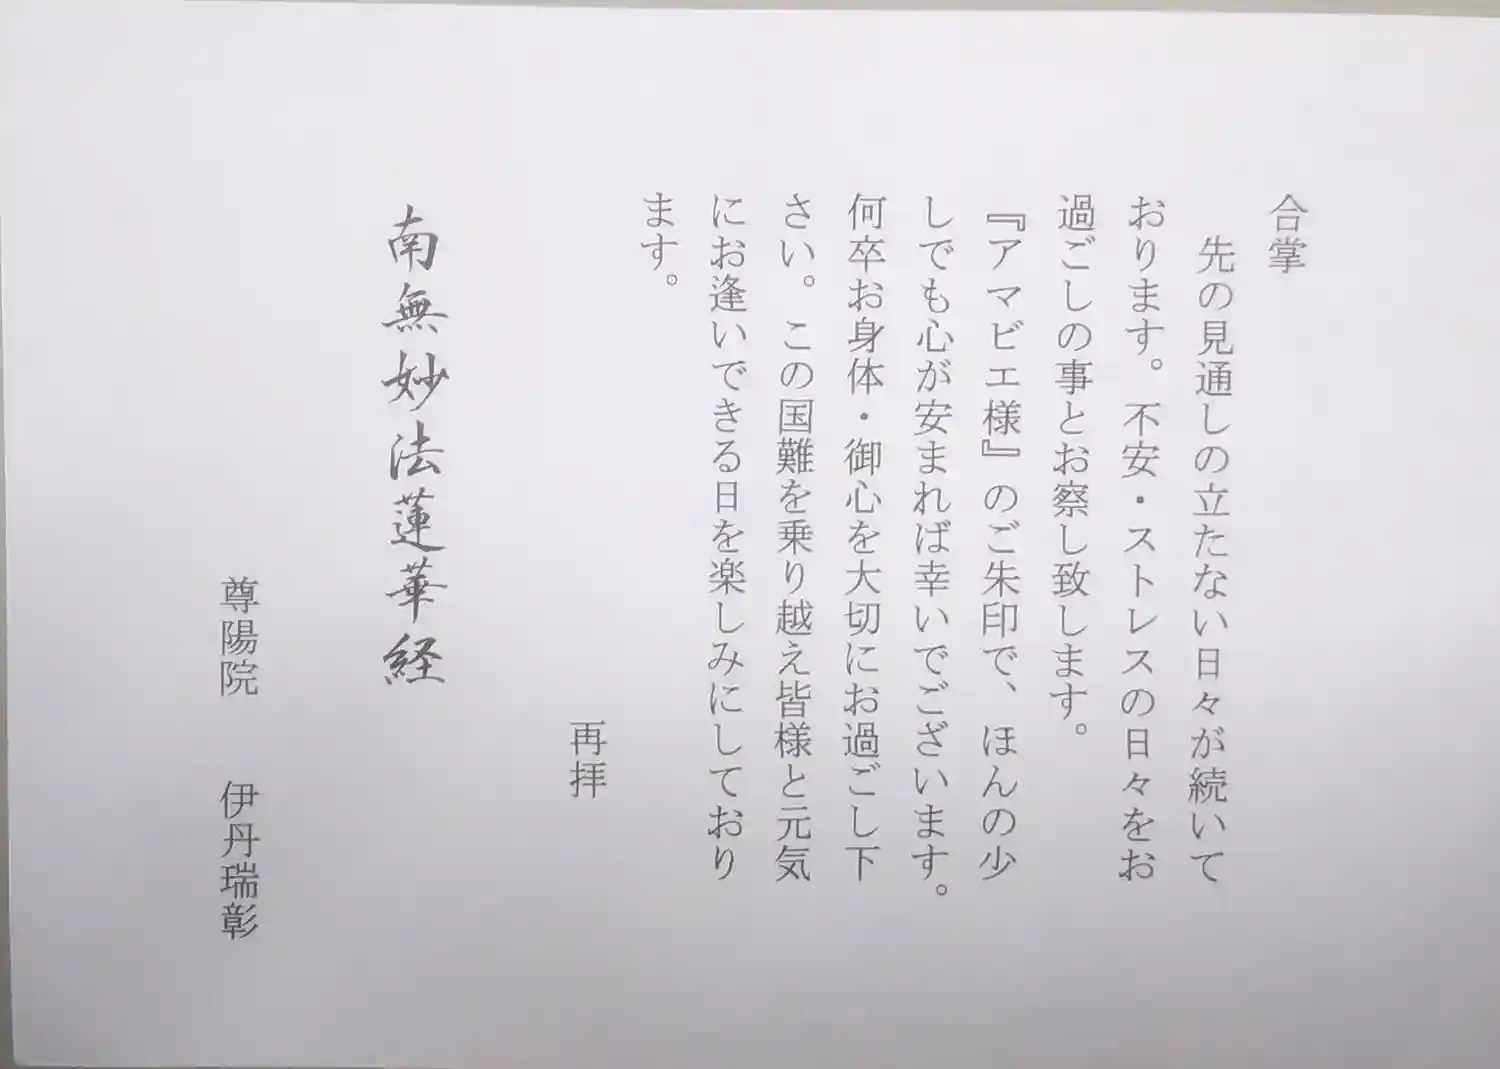 合掌
先の見通しの立たない日々が続いて
おります。不安・ストレスの日々をお
過ごしの事とお察し致します。
『アマビエ様』のご朱印で、ほんの少
しでも心が安まれば幸いでございます。
何卒お身体・御心を大切にお過ごし下
さい。この国難を乗り越え皆様と元気
にお逢いできる日を楽しみにしており
ます。
再拝
南無妙法蓮華経
尊陽院　伊丹瑞彰